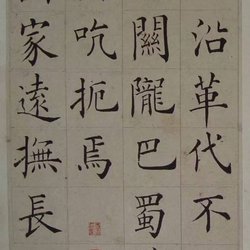 沿革代不
關隴巴蜀
吭扼焉
家遠撫長